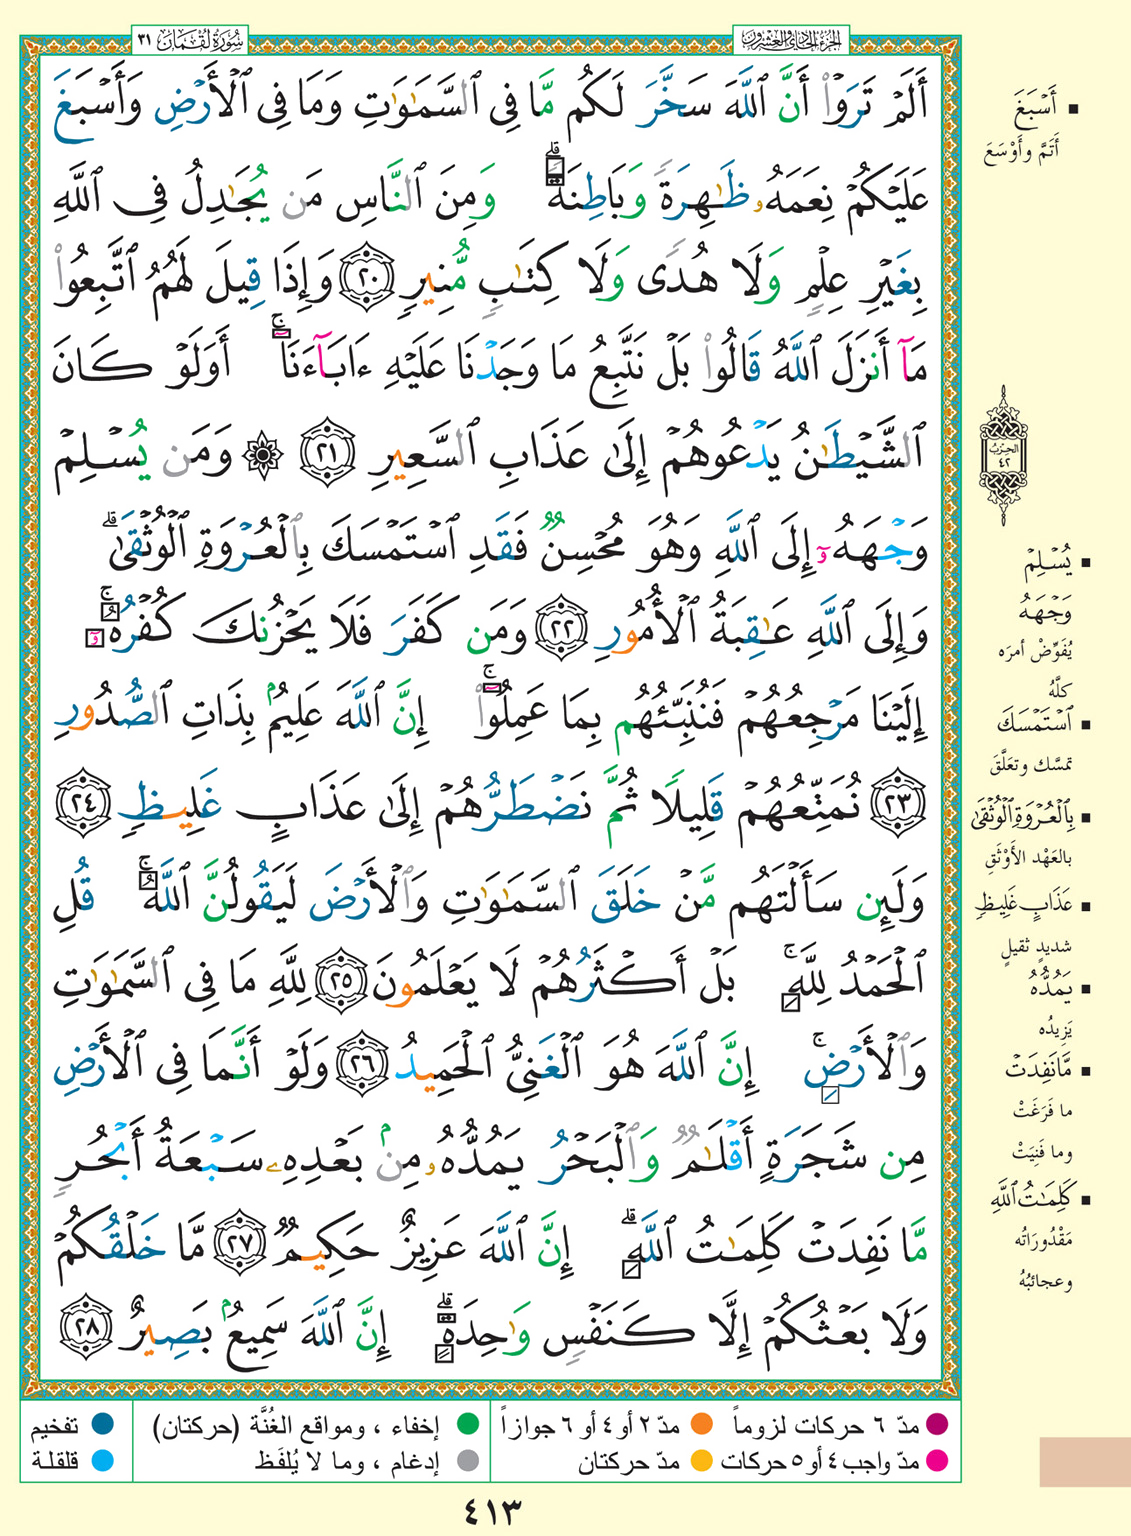 سُورَةُ لُقۡمَان ٣١
الجزء الحادي والعشرون
أَلَمۡ تَرَوۡاْ أَنَّ ٱللَّهَ سَخَّرَ لَكُم مَّا فِي ٱلسَّمَٰوَٰتِ وَمَا فِي ٱلۡأَرۡضِ وَأَسۡبَغَ
عَلَيۡكُمۡ نِعَمَهُۥ ظَٰهِرَةٗ وَبَاطِنَةٗۗ وَمِنَ ٱلنَّاسِ مَن يُجَٰدِلُ فِي ٱللَّهِ
بِغَيۡرِ عِلۡمٖ وَلَا هُدٗى وَلَا كِتَٰبٖ مُّنِيرٖ ٢٠ وَإِذَا قِيلَ لَهُمُ ٱتَّبِعُواْ
مَآ أَنزَلَ ٱللَّهُ قَالُواْ بَلۡ نَتَّبِعُ مَا وَجَدۡنَا عَلَيۡهِ ءَابَآءَنَآۚ أَوَلَوۡ كَانَ
ٱلشَّيۡطَٰنُ يَدۡعُوهُمۡ إِلَىٰ عَذَابِ ٱلسَّعِيرِ ٢١ ۞ وَمَن يُسۡلِمۡ
وَجۡهَهُۥٓ إِلَى ٱللَّهِ وَهُوَ مُحۡسِنٞ فَقَدِ ٱسۡتَمۡسَكَ بِٱلۡعُرۡوَةِ ٱلۡوُثۡقَىٰۗ
وَإِلَى ٱللَّهِ عَٰقِبَةُ ٱلۡأُمُورِ ٢٢ وَمَن كَفَرَ فَلَا يَحۡزُنكَ كُفۡرُهُۥٓۚ
إِلَيۡنَا مَرۡجِعُهُمۡ فَنُنَبِّئُهُم بِمَا عَمِلُوٓاْۚ إِنَّ ٱللَّهَ عَلِيمُۢ بِذَاتِ ٱلصُّدُورِ
٢٣ نُمَتِّعُهُمۡ قَلِيلٗا ثُمَّ نَضۡطَرُّهُمۡ إِلَىٰ عَذَابٍ غَلِيظٖ ٢٤
وَلَئِن سَأَلۡتَهُم مَّنۡ خَلَقَ ٱلسَّمَٰوَٰتِ وَٱلۡأَرۡضَ لَيَقُولُنَّ ٱللَّهُۚ قُلِ
ٱلۡحَمۡدُ لِلَّهِۚ بَلۡ أَكۡثَرُهُمۡ لَا يَعۡلَمُونَ ٢٥ لِلَّهِ مَا فِي ٱلسَّمَٰوَٰتِ
وَٱلۡأَرۡضِۚ إِنَّ ٱللَّهَ هُوَ ٱلۡغَنِيُّ ٱلۡحَمِيدُ ٢٦ وَلَوۡ أَنَّمَا فِي ٱلۡأَرۡضِ
مِن شَجَرَةٍ أَقۡلَٰمٞ وَٱلۡبَحۡرُ يَمُدُّهُۥ مِنۢ بَعۡدِهِۦ سَبۡعَةُ أَبۡحُرٖ
مَّا نَفِدَتۡ كَلِمَٰتُ ٱللَّهِۗ إِنَّ ٱللَّهَ عَزِيزٌ حَكِيمٞ ٢٧ مَّا خَلۡقُكُمۡ
وَلَا بَعۡثُكُمۡ إِلَّا كَنَفۡسٖ وَٰحِدَةٍۗ إِنَّ ٱللَّهَ سَمِيعُۢ بَصِيرٌ ٢٨
أَسۡبَغَ
أَتَمَّ وأَوْسَعَ
الحزب
٤٢
يُسۡلِمۡ
وَجۡهَهُ
يُفَوِّضْ أمرَه
كلَّهُ
ٱسۡتَمۡسَكَ
تمسَّك وتعَلَّقَ
بِٱلۡعُرۡوَةِ ٱلۡوُثۡقَىٰ
بالعَهْد الأَوْثَقِ
عَذَابٍ غَلِيظٖ
شديدٍ ثقيلٍ
يَمُدُّهُ
يَزِيدُه
مَّا نَفِدَتۡ
ما فَرَغَتْ
وما فَنِيَتْ
كَلِمَٰتُ ٱللَّهِ
مَقْدُورَاتُه
وعجائبُهُ
مدّ ٦ حركات لزوماً مدّ ٢ أو ٤ أو ٦ جوازاً إخفاء ، ومواقع الغُنَّة (حركتان) تفخيم
مدّ واجب ٤ أو ٥ حركات مدّ حركتان إدغام ، وما لا يُلفَظ قلقلة
٤١٣